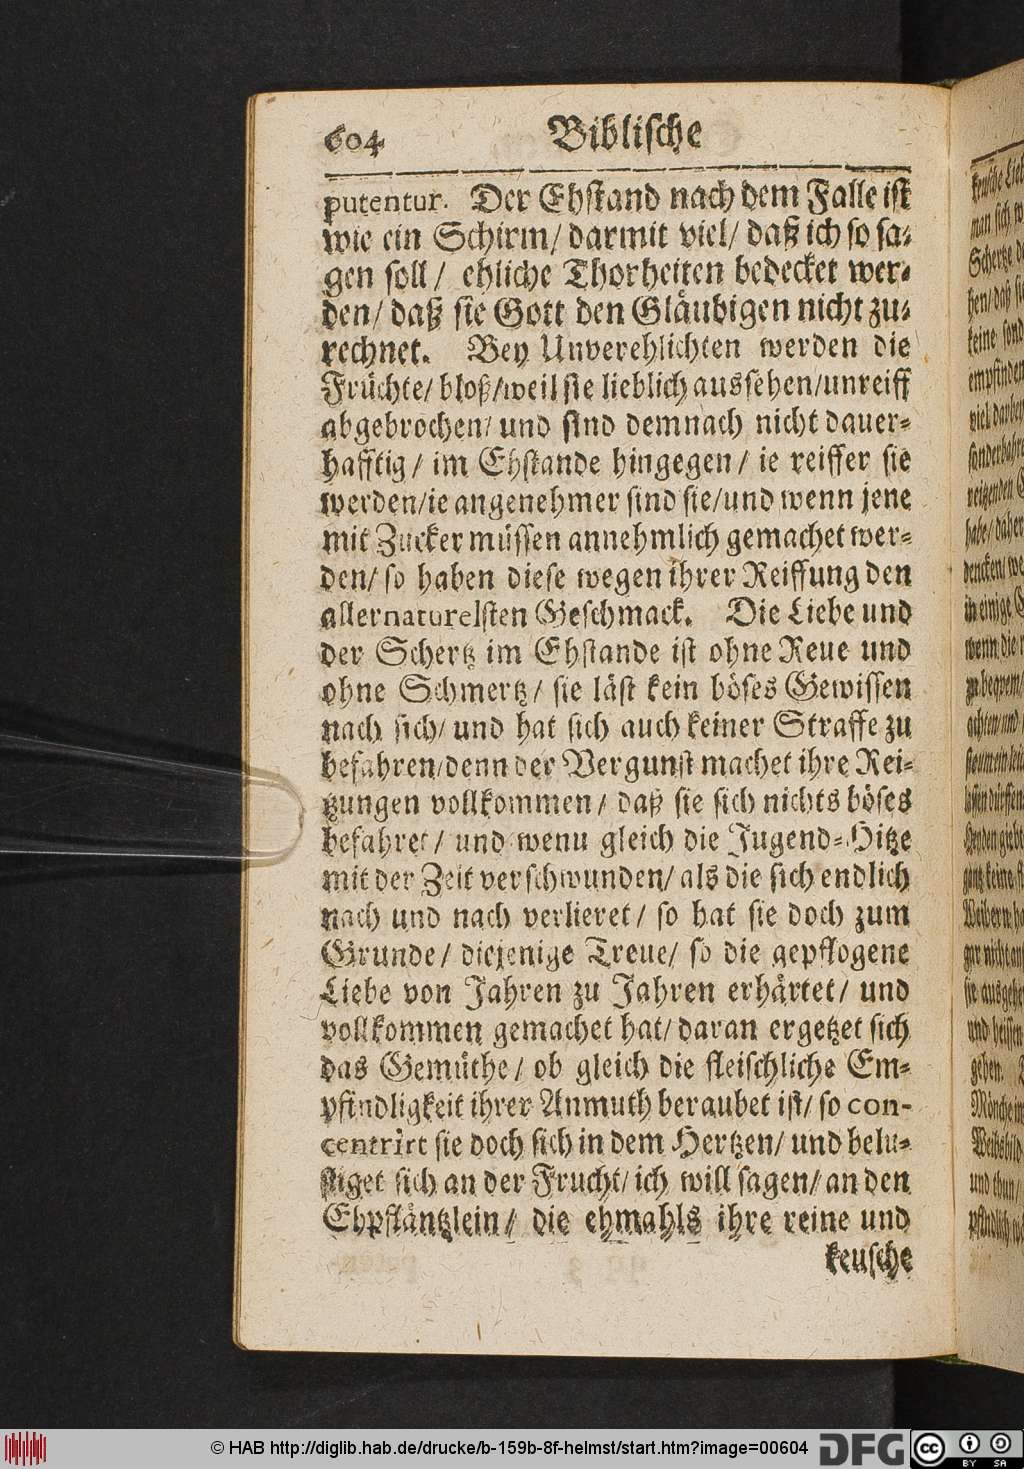 604 Biblische
putentur. Der Ehstand nach dem Falle ist
wie ein Schirm/ darmit viel/ daß ich so sa-
gen soll/ ehliche Thorheiten bedecket wer-
den/ daß sie Gott den Gläubigen nicht zu-
rechnet. Bey Unverehlichten werden die
Früchte/ bloß/ weil sie lieblich aussehen/ unreiff
abgebrochen/ und sind demnach nicht dauer-
hafftig/ im Ehstande hingegen/ ie reiffer sie
werden/ ie angenehmer sind sie/ und wenn jene
mit Zucker müssen annehmlich gemachet wer-
den/ so haben diese wegen ihrer Reiffung den
allernaturelsten Geschmack. Die Liebe und
der Schertz im Ehstande ist ohne Reue und
ohne Schmertz/ sie läst kein böses Gewissen
nach sich/ und hat sich auch keiner Straffe zu
befahren/ denn der Vergunst machet ihre Rei-
tzungen vollkommen/ daß sie sich nichts böses
befahret/ und wenn gleich die Jugend-Hitze
mit der Zeit verschwunden/ als die sich endlich
nach und nach verlieret/ so hat sie doch zum
Grunde/ diejenige Treue/ so die gepflogene
Liebe von Jahren zu Jahren erhärtet/ und
vollkommen gemachet hat/ daran ergetzet sich
das Gemüthe/ ob gleich die fleischliche Em-
pfindligkeit ihrer Anmuth beraubet ist/ so con-
centrirt sie doch sich in dem Hertzen/ und belu-
stiget sich an der Frucht/ ich will sagen/ an den
Ehpfläntzlein/ die ehmahls ihre reine und
keusche
© HAB http://diglib.hab.de/drucke/b-159b-8f-helmst/start.htm?image=00604 DFG cc BY SA